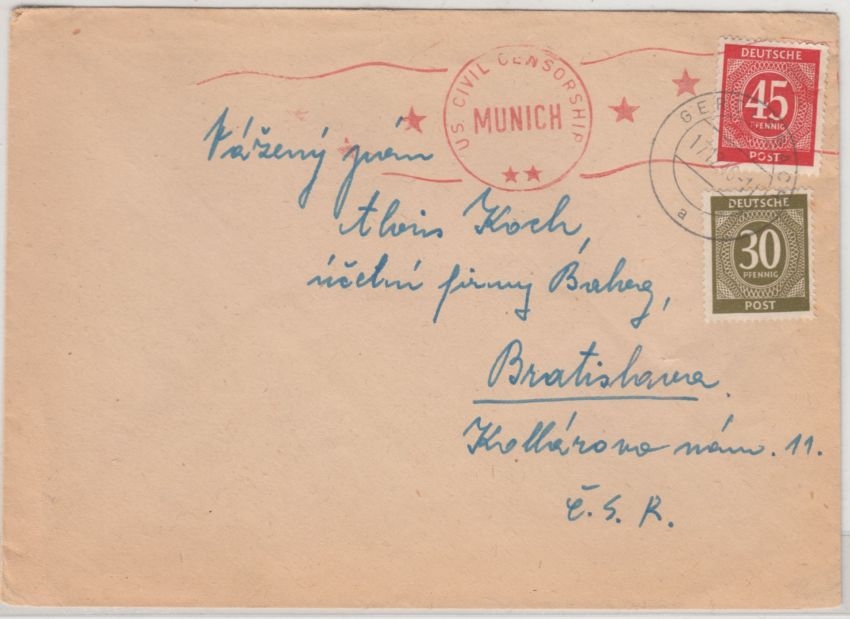 U.S. CIVIL CENSORSHIP
MUNICH
DEUTSCHE
45
PFENNIG
POST
DEUTSCHE
30
PFENNIG
POST
a
Vážený pán
Alois Koch,
účetní firmy Baherg,
Bratislava.
Kollárovo nám. 11.
Č. S. R.